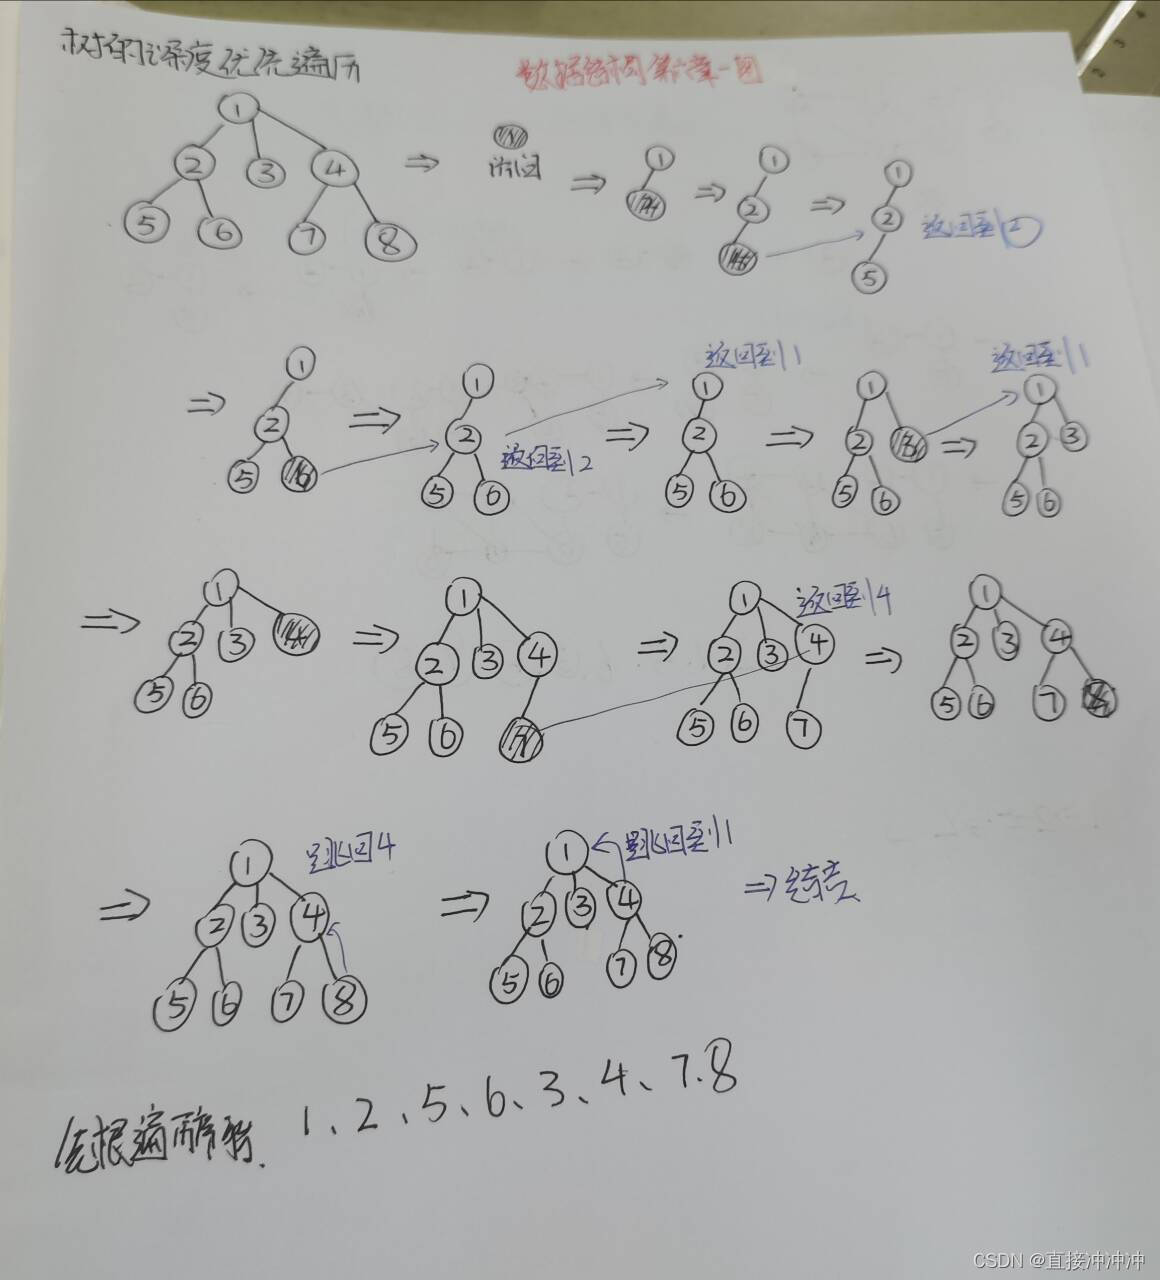 树的深度优先遍历
数据结构第六章一图
1
2 3 4
5 6 7 8
⇒ 访问 ⇒ 1 ⇒ 1 2 ⇒ 1 2 5 返回到2
⇒ 1 2 5 6 ⇒ 1 2 5 6 返回到2 ⇒ 返回到1 1 2 5 6 ⇒ 1 2 3 5 6 ⇒ 返回到1 1 2 3 5 6
⇒ 1 2 3 4 5 6 ⇒ 1 2 3 4 5 6 7 ⇒ 1 2 3 4 5 6 7 返回到4 ⇒ 1 2 3 4 5 6 7 8
⇒ 1 2 3 4 5 6 7 8 跳回4 ⇒ 1 2 3 4 5 6 7 8 跳回到1 ⇒ 结束
先根遍历序列 1、2、5、6、3、4、7.8
CSDN @直接冲冲冲